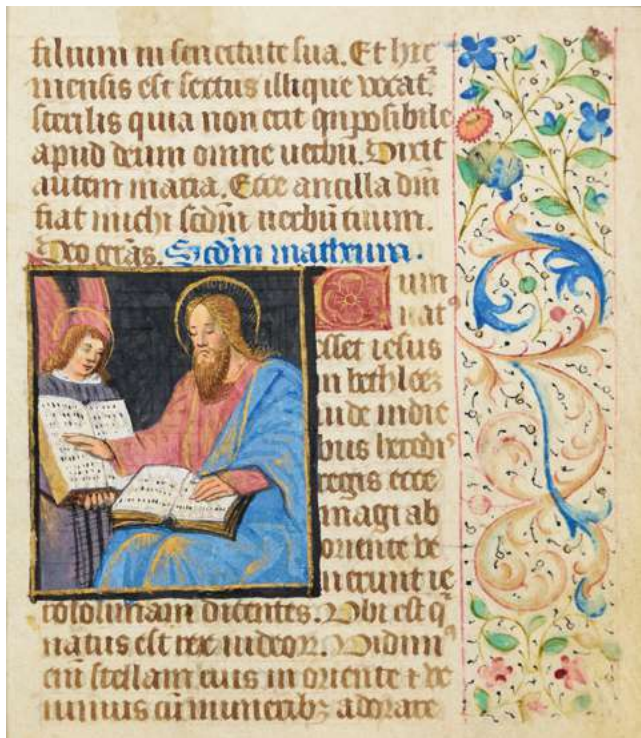 filium in senectute sua. Et hic
mensis est sextus illi que vocat᷑
sterilis quia non erit īpossibile
apud deum omne uerbū. Dixit
autem maria. Ecce ancilla dn̄i
fiat michi scdm̄ uerbū tuum.
Deo grās. Scdm̄ matheum.
Cum
natꝰ
esset iesus
in bethleeꝫ
iude in die
bus herodiˢ
regis ecce
magi ab
oriente ve
nerunt ie
rosolimam dicentes. Vbi est q̄
natus est rex iudeoꝝ. Vidimꝰ
eni᷑ stellam eius in oriente ⁊ ve
nimus cū muneribꝫ adorare